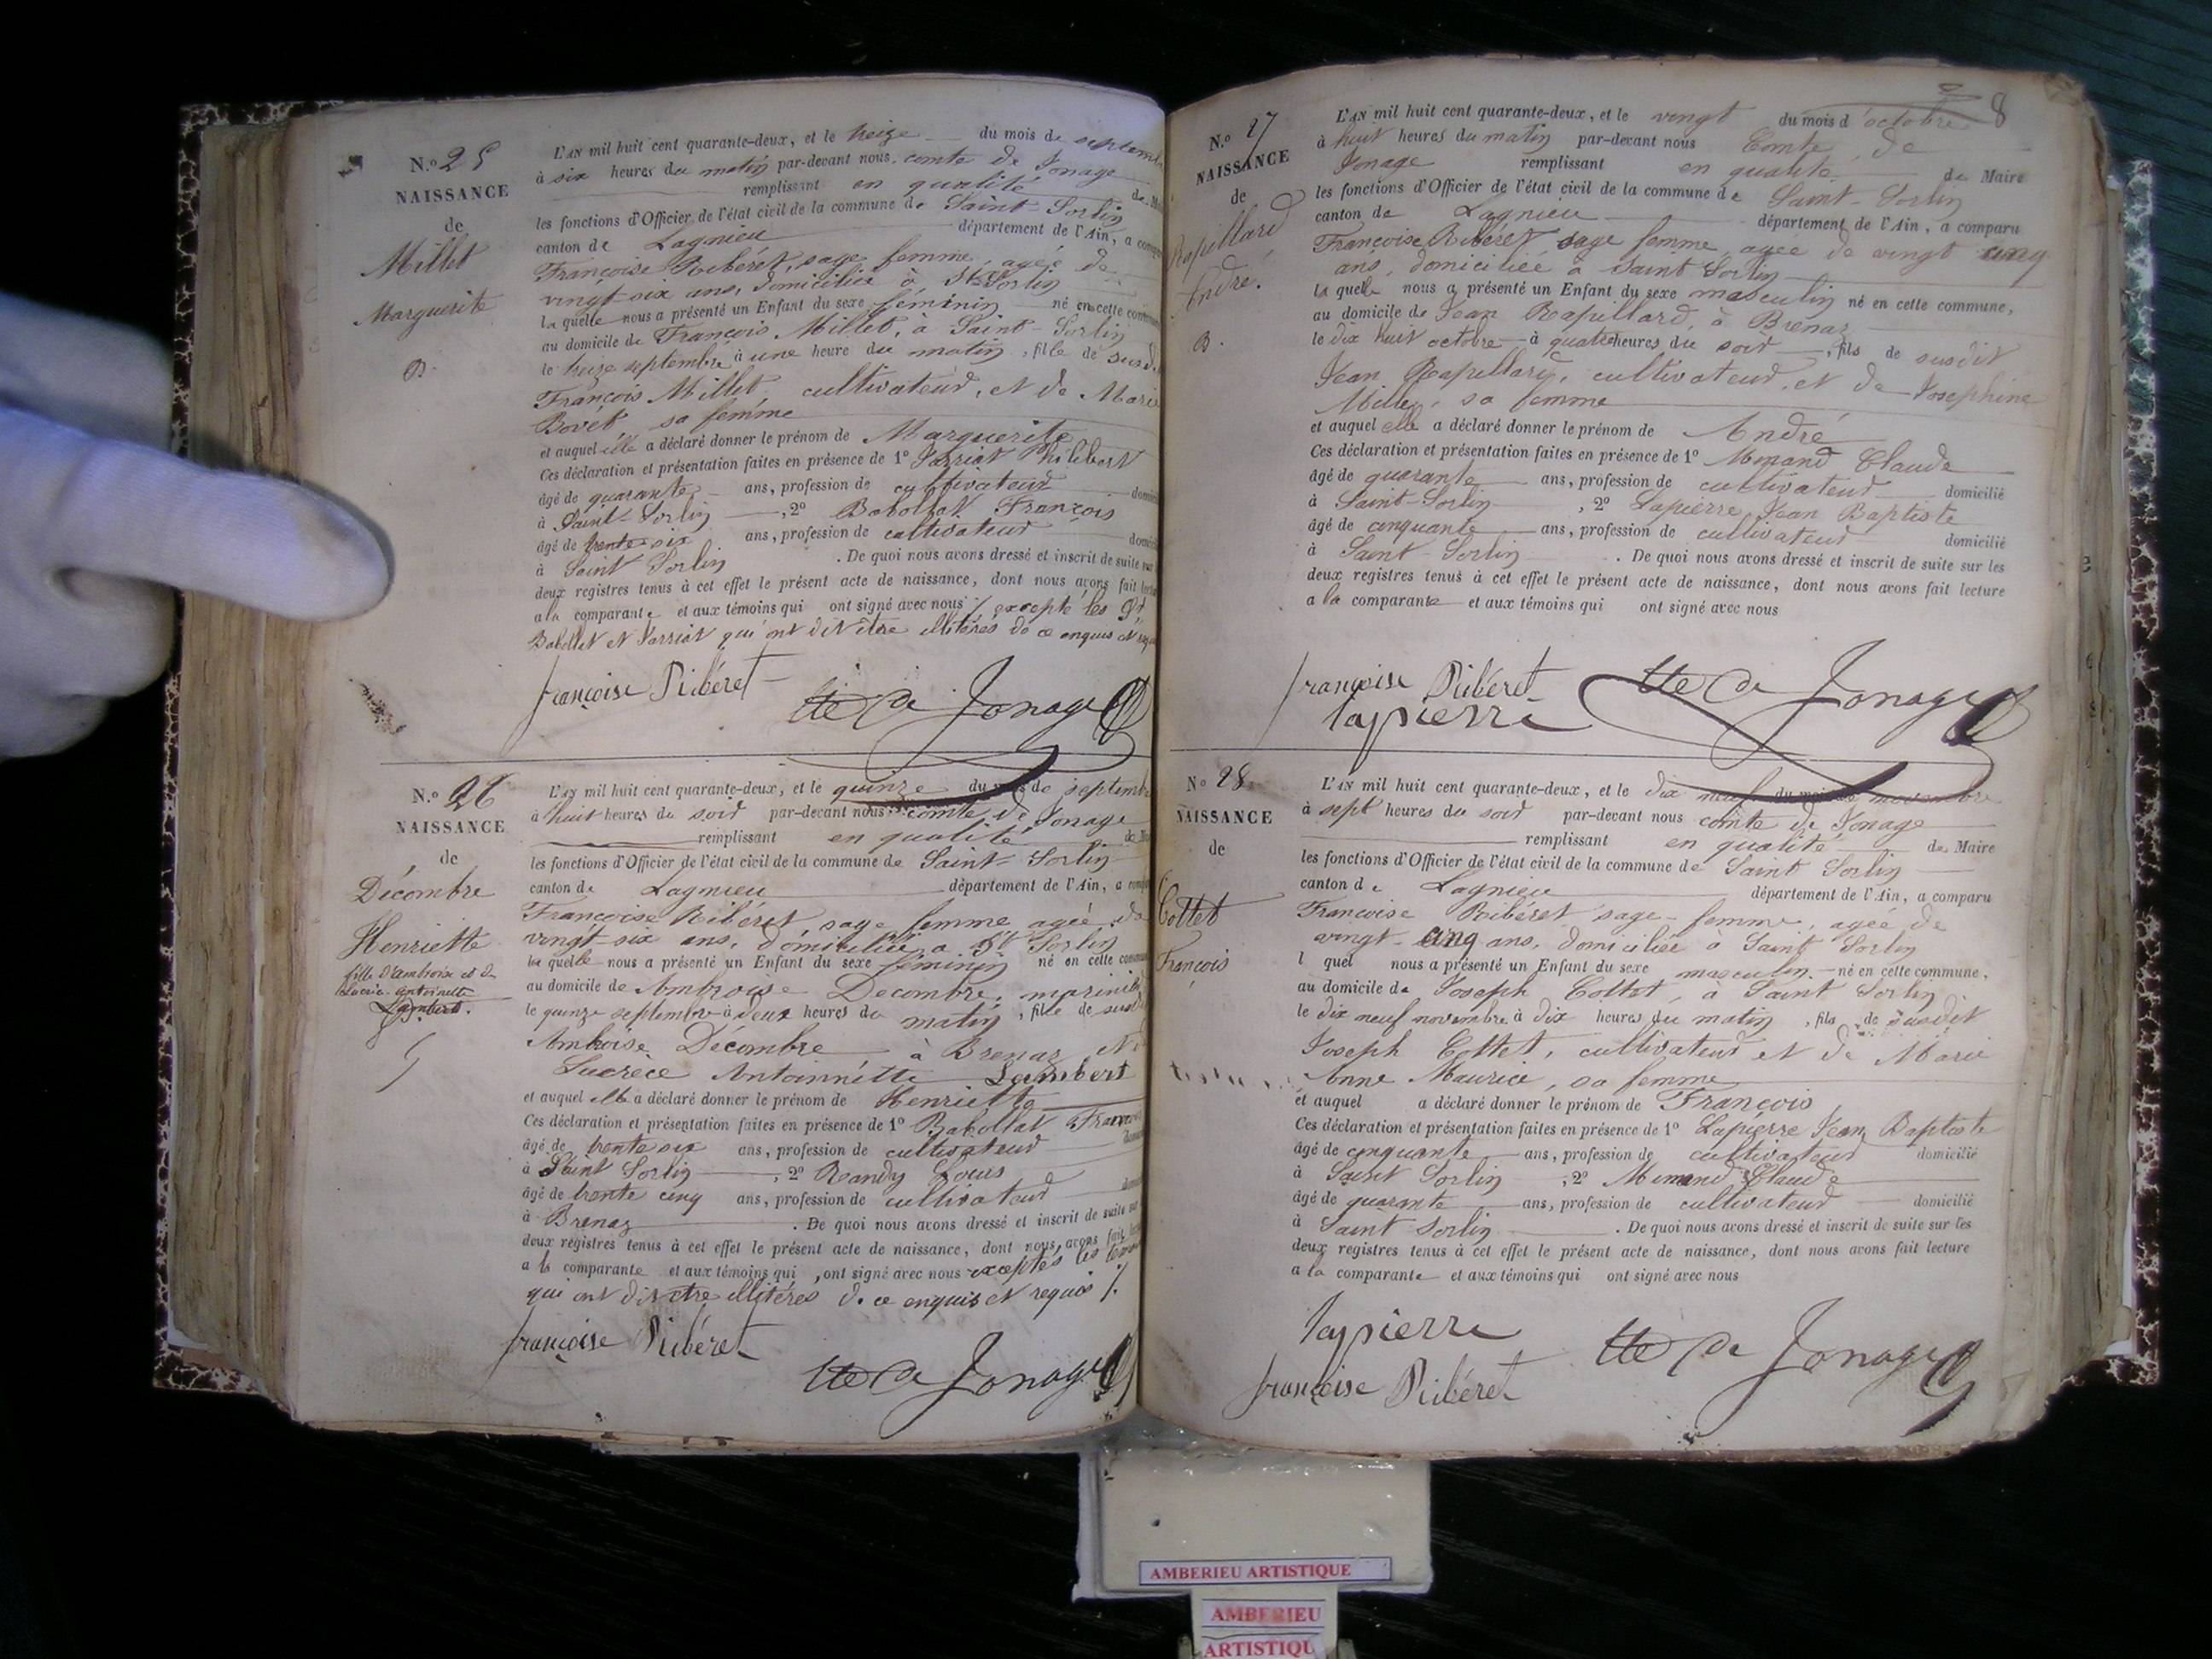 N.o 25
NAISSANCE
de
Millet
Marguerite
B.
L'AN mil huit cent quarante-deux, et le treize du mois de septemb
à six heures du matin par-devant nous comte de Jonage
remplissant en qualité de M
les fonctions d'Officier de l'état civil de la commune de Saint-Sorlin
canton de Lagnieu département de l'Ain, a comp
Françoise Ribéret, sage femme, agée de
vingt-six ans, domiciliée à St Sorlin
la quelle nous a présenté un Enfant du sexe féminin né en cette commun
au domicile de François Millet, à Saint-Sorlin
le treize septembre à une heure du matin, fille de susd
François Millet, cultivateur, et de Marie
Bovet sa femme
et auquel elle a déclaré donner le prénom de Marguerite
Ces déclaration et présentation faites en présence de 1o Philibert
âgé de quarante ans, profession de cultivateur domici
à Saint-Sorlin, 2o Babollat François
âgé de trente six ans, profession de cultivateur domici
à Saint Sorlin. De quoi nous avons dressé et inscrit de suite sur
deux registres tenus à cet effet le présent acte de naissance, dont nous avons fait lectu
a la comparante et aux témoins qui ont signé avec nous excepté les
Babollat et qui ont dit être illitérés de ce enquis et
françoise Ribéret
Cte de Jonage
N.o 26
NAISSANCE
de
Décombre
Henriette
fille d'ambroise et de
Lucrèce antoinette
Lambert.
L'AN mil huit cent quarante-deux, et le quinze du mois de septemb
à huit heures du soir par-devant nous comte de Jonage
remplissant en qualité de M
les fonctions d'Officier de l'état civil de la commune de Saint-Sorlin
canton de Lagnieu département de l'Ain, a comp
Françoise Ribéret, sage femme agée de
vingt six ans, domiciliée a St Sorlin
la quelle nous a présenté un Enfant du sexe féminin né en cette commun
au domicile de Ambroise Decombre, marinier
le quinze septembre à deux heures du matin, fille de susd
Ambroise Décombre, à Brenaz et
Lucrèce Antoinnette Lambert
et auquel elle a déclaré donner le prénom de Henriette
Ces déclaration et présentation faites en présence de 1o Babollat François
âgé de trente six ans, profession de cultivateur
à Saint Sorlin, 2o Randy Louis
âgé de trente cinq ans, profession de cultivateur
à Brenaz. De quoi nous avons dressé et inscrit de suite sur
deux registres tenus à cet effet le présent acte de naissance, dont nous avons fait
a la comparante et aux témoins qui, ont signé avec nous exceptés les
qui ont dit etre illitéres de ce enquis et requis /.
françoise Ribéret
Cte de Jonage
8
N.o 27
NAISSANCE
de
Rapillard
André.
B.
L'AN mil huit cent quarante-deux, et le vingt du mois d'octobre
à huit heures du matin par-devant nous Comte de
Jonage remplissant en qualité de Maire
les fonctions d'Officier de l'état civil de la commune de Saint-Sorlin
canton de Lagnieu département de l'Ain, a comparu
Françoise Ribéret sage femme, agée de vingt cinq
ans, domiciliée a Saint Sorlin
la quelle nous a présenté un Enfant du sexe masculin né en cette commune,
au domicile de Jean Rapillard, à Brenaz
le dix huit octobre à quatre heures du soir, fils de susdit
Jean Rapillard, cultivateur, et de Josephine
sa femme
et auquel elle a déclaré donner le prénom de André
Ces déclaration et présentation faites en présence de 1o Minand Claude
âgé de quarante ans, profession de cultivateur domicilié
à Saint-Sorlin, 2o Lapierre Jean Baptiste
âgé de cinquante ans, profession de cultivateur domicilié
à Saint-Sorlin. De quoi nous avons dressé et inscrit de suite sur les
deux registres tenus à cet effet le présent acte de naissance, dont nous avons fait lecture
a la comparante et aux témoins qui ont signé avec nous
françoise Ribéret
Cte de Jonage
lapierre
No 28
NAISSANCE
de
Cottet
François
L'AN mil huit cent quarante-deux, et le dix neuf du mois de novembre
à sept heures du soir par-devant nous comte de Jonage
remplissant en qualité de Maire
les fonctions d'Officier de l'état civil de la commune de Saint Sorlin
canton de Lagnieu département de l'Ain, a comparu
Françoise Ribéret sage-femme, agée de
vingt-cinq ans, domiciliée à Saint Sorlin
l quel nous a présenté un Enfant du sexe masculin né en cette commune,
au domicile de Joseph Cottet, à Saint Sorlin
le dix neuf novembre à dix heures du matin, fils de susdit
Joseph Cottet, cultivateur et de Marie
Anne Maurice, sa femme
et auquel a déclaré donner le prénom de François
Ces déclaration et présentation faites en présence de 1o Lapierre Jean Baptiste
âgé de cinquante ans, profession de cultivateur domicilié
à Saint Sorlin, 2o Minand Claude
âgé de quarante ans, profession de cultivateur domicilié
à Saint Sorlin. De quoi nous avons dressé et inscrit de suite sur les
deux registres tenus à cet effet le présent acte de naissance, dont nous avons fait lecture
a la comparante et aux témoins qui ont signé avec nous
lapierre
Cte de Jonage
françoise Ribéret
AMBERIEU ARTISTIQUE
AMBERIEU
ARTISTIQU